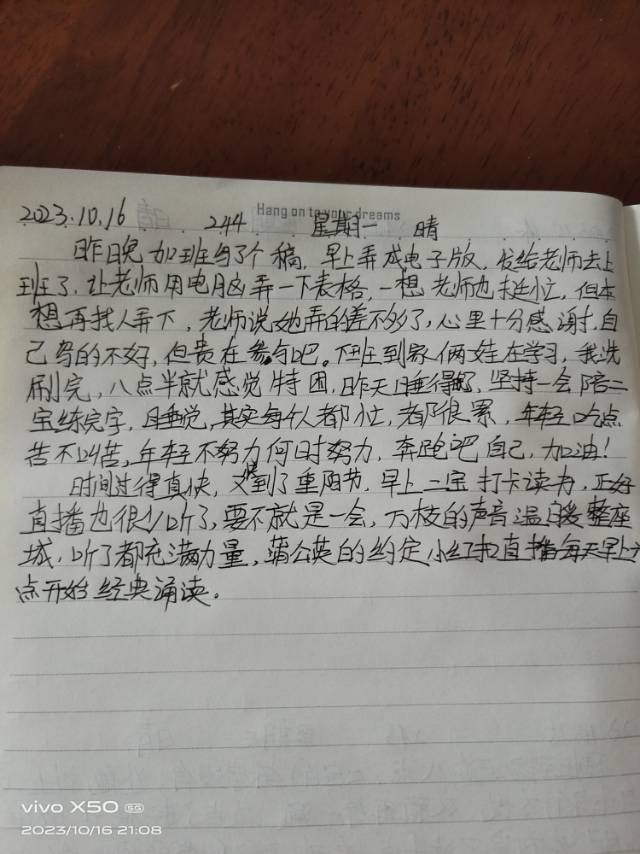 Hang on to your dreams
2023.10.16 244 星期一 晴
昨晚加班写了个稿，早上弄成电子版，发给老师去上
班了，让老师用电脑弄一下表格，一想老师也挺忙，但本
想再找人弄下，老师说她弄的差不多了，心里十分感谢，自
己写的不好，但贵在参与吧。下班到家俩娃在学习，我洗
刷完，八点半就感觉特困，昨天睡得，坚持一会陪二
宝练完字，睡觉，其实每个人都忙，都很累，年轻吃点
苦不叫苦，年轻不努力何时努力，奔跑吧自己，加油！
时间过得真快，又到了重阳节，早上二宝打卡读书，正好
直播也很少听了，要不就是一会，万枝的声音温暖整座
城，听了都充满力量，蒲公英的约定小红扣直播每天早上六
点开始经典诵读。
vivo X50 5G
2023/10/16 21:08